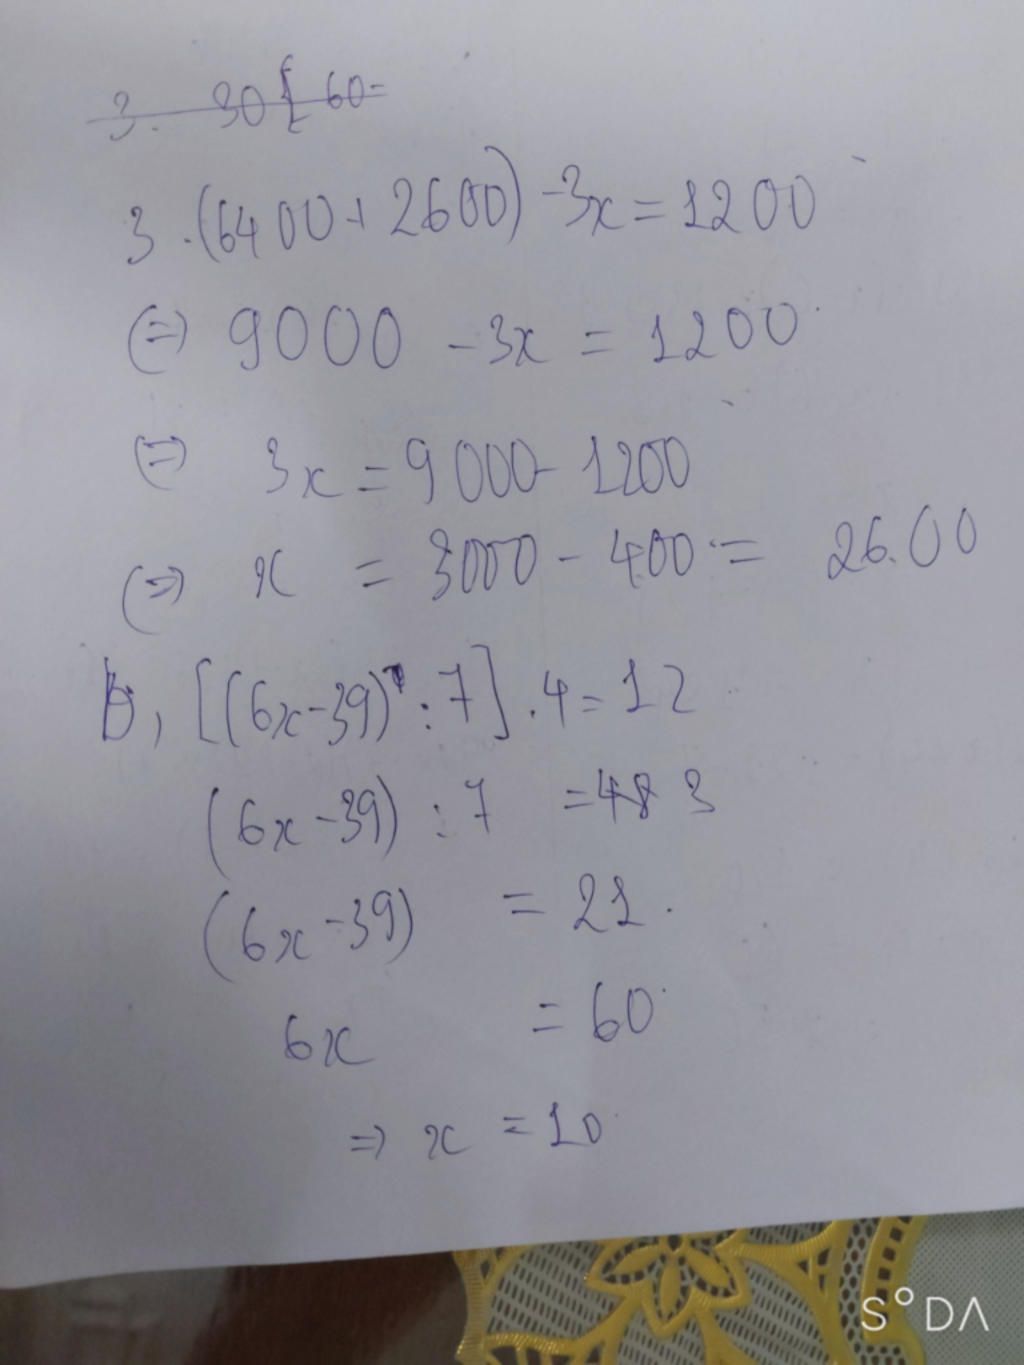 3. 30[ 60-
3.(6400+2600)-3x=1200
(=) 9000 -3x = 1200
(=) 3x = 9000-1200
(=) x = 3000-400 = 26.00
b, [(6x-39):7].4=12
(6x-39):7 =48 3
(6x-39) = 21.
6x = 60
=> x = 10
S°DΛ